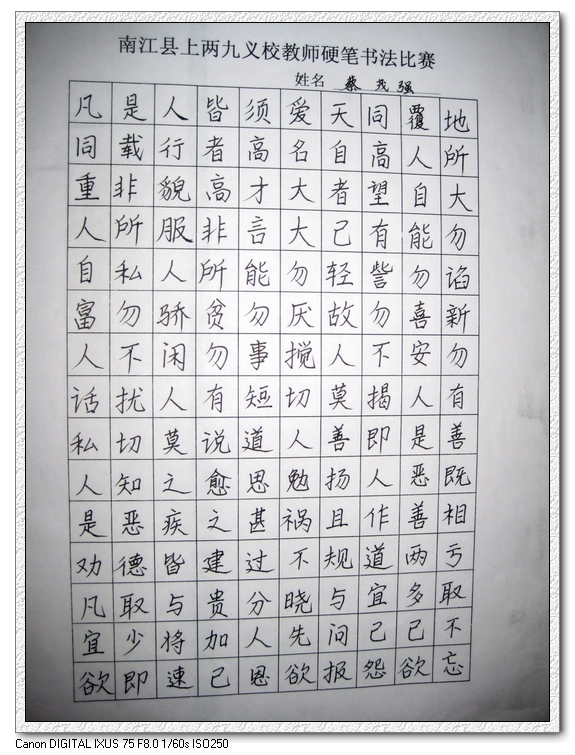 南江县上两九义校教师硬笔书法比赛
姓名 蔡茂强
凡是人皆须爱天同覆地
同载行者高名自高人所
重非貌高才大者望自大
人所服非言大己有能勿
自私人所能勿轻訾勿谄
富勿骄贫勿厌故勿喜新
人不闲勿事搅人不安勿
话扰人有短切莫揭人有
私切莫说道人善即是善
人知之愈思勉扬人恶既
是恶疾之甚祸且作善相
劝德皆建过不规道两亏
凡取与贵分晓与宜多取
宜少将加人先问己己不
欲即速已恩欲报怨欲忘
Canon DIGITAL IXUS 75 F8.0 1/60s ISO250